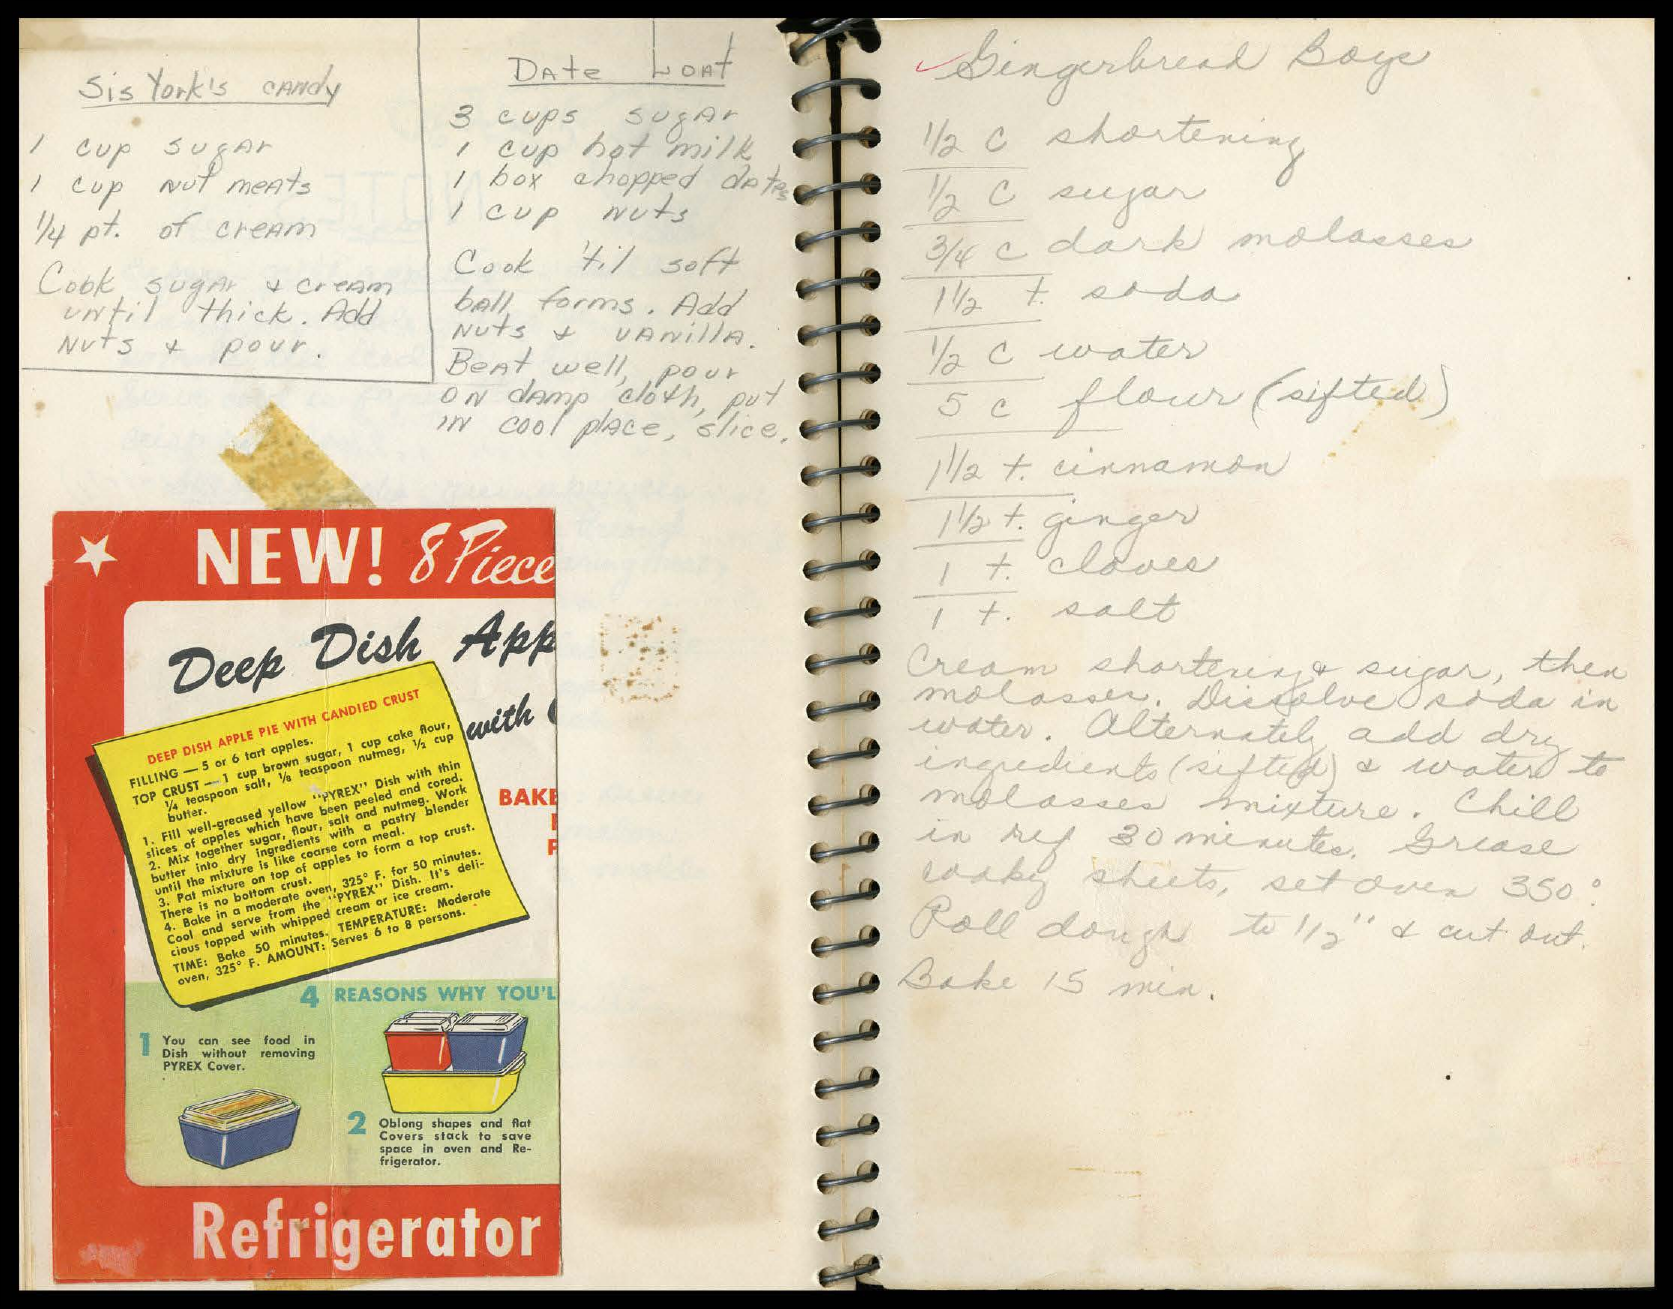 Sis York's CANdy
1 cup sugAr
1 cup Nut meAts
1/4 pt. of creAm
Cook sugAr & creAm
until thick. Add
Nuts & pour.
DAte LoAf
3 cups sugAr
1 cup hot milk
1 box chopped dAtes
1 cup nuts
Cook 'til soft
bAll forms. Add
Nuts & vANillA.
BeAt well, pour
ON dAmp cloth, put
IN cool plAce, slice.
NEW! 8 Piece
Deep Dish App
with
DEEP DISH APPLE PIE WITH CANDIED CRUST
FILLING — 5 or 6 tart apples.
TOP CRUST — 1 cup brown sugar, 1 cup cake flour,
1/4 teaspoon salt, 1/8 teaspoon nutmeg, 1/2 cup
butter.
1. Fill well-greased yellow "PYREX" Dish with thin
slices of apples which have been peeled and cored.
2. Mix together sugar, flour, salt and nutmeg. Work
butter into dry ingredients with a pastry blender
until the mixture is like coarse corn meal.
3. Pat mixture on top of apples to form a top crust.
There is no bottom crust.
4. Bake in a moderate oven, 325° F. for 50 minutes.
Cool and serve from the "PYREX" Dish. It's deli-
cious topped with whipped cream or ice cream.
TIME: Bake 50 minutes. TEMPERATURE: Moderate
oven, 325° F. AMOUNT: Serves 6 to 8 persons.
BAKE
4 REASONS WHY YOU'L
1 You can see food in
Dish without removing
PYREX Cover.
2 Oblong shapes and flat
Covers stack to save
space in oven and Re-
frigerator.
Refrigerator
Gingerbread Boys
1/2 c shortening
1/2 c sugar
3/4 c dark molasses
1 1/2 t. soda
1/2 c water
5 c flour (sifted)
1 1/2 t. cinnamon
1 1/2 t. ginger
1 t. cloves
1 t. salt
Cream shortening & sugar, then
molasses. Dissolve soda in
water. Alternately add dry
ingredients (sifted) & water to
molasses mixture. Chill
in ref 30 minutes. Grease
cooky sheets, set oven 350°.
Roll dough to 1/2" & cut out.
Bake 15 min.